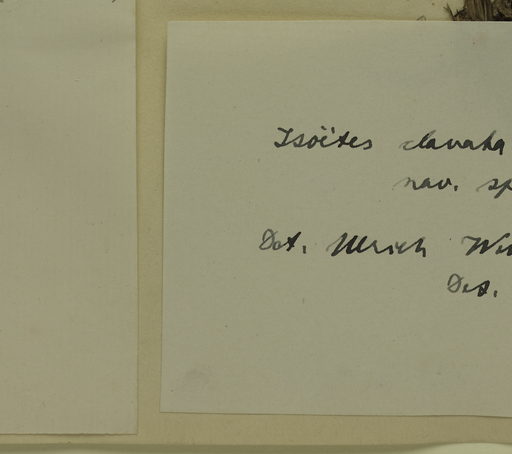 Isoëtes clavata
nov. sp
Det. Ulrich We
Det.